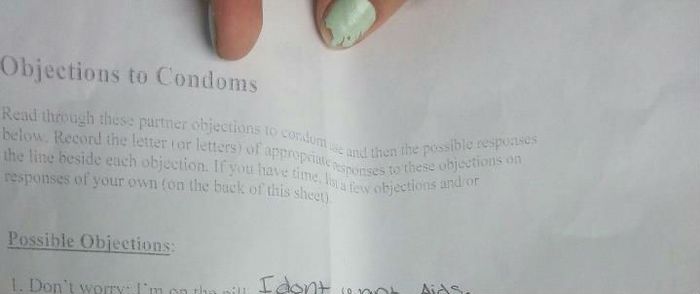 Objections to Condoms
Read through these partner objections to condom use and then the possible responses
below. Record the letter (or letters) of appropriate responses to these objections on
the line beside each objection. If you have time, list a few objections and/or
responses of your own (on the back of this sheet).
Possible Objections:
1. Don't worry; I'm on the pill. I dont want Aids.